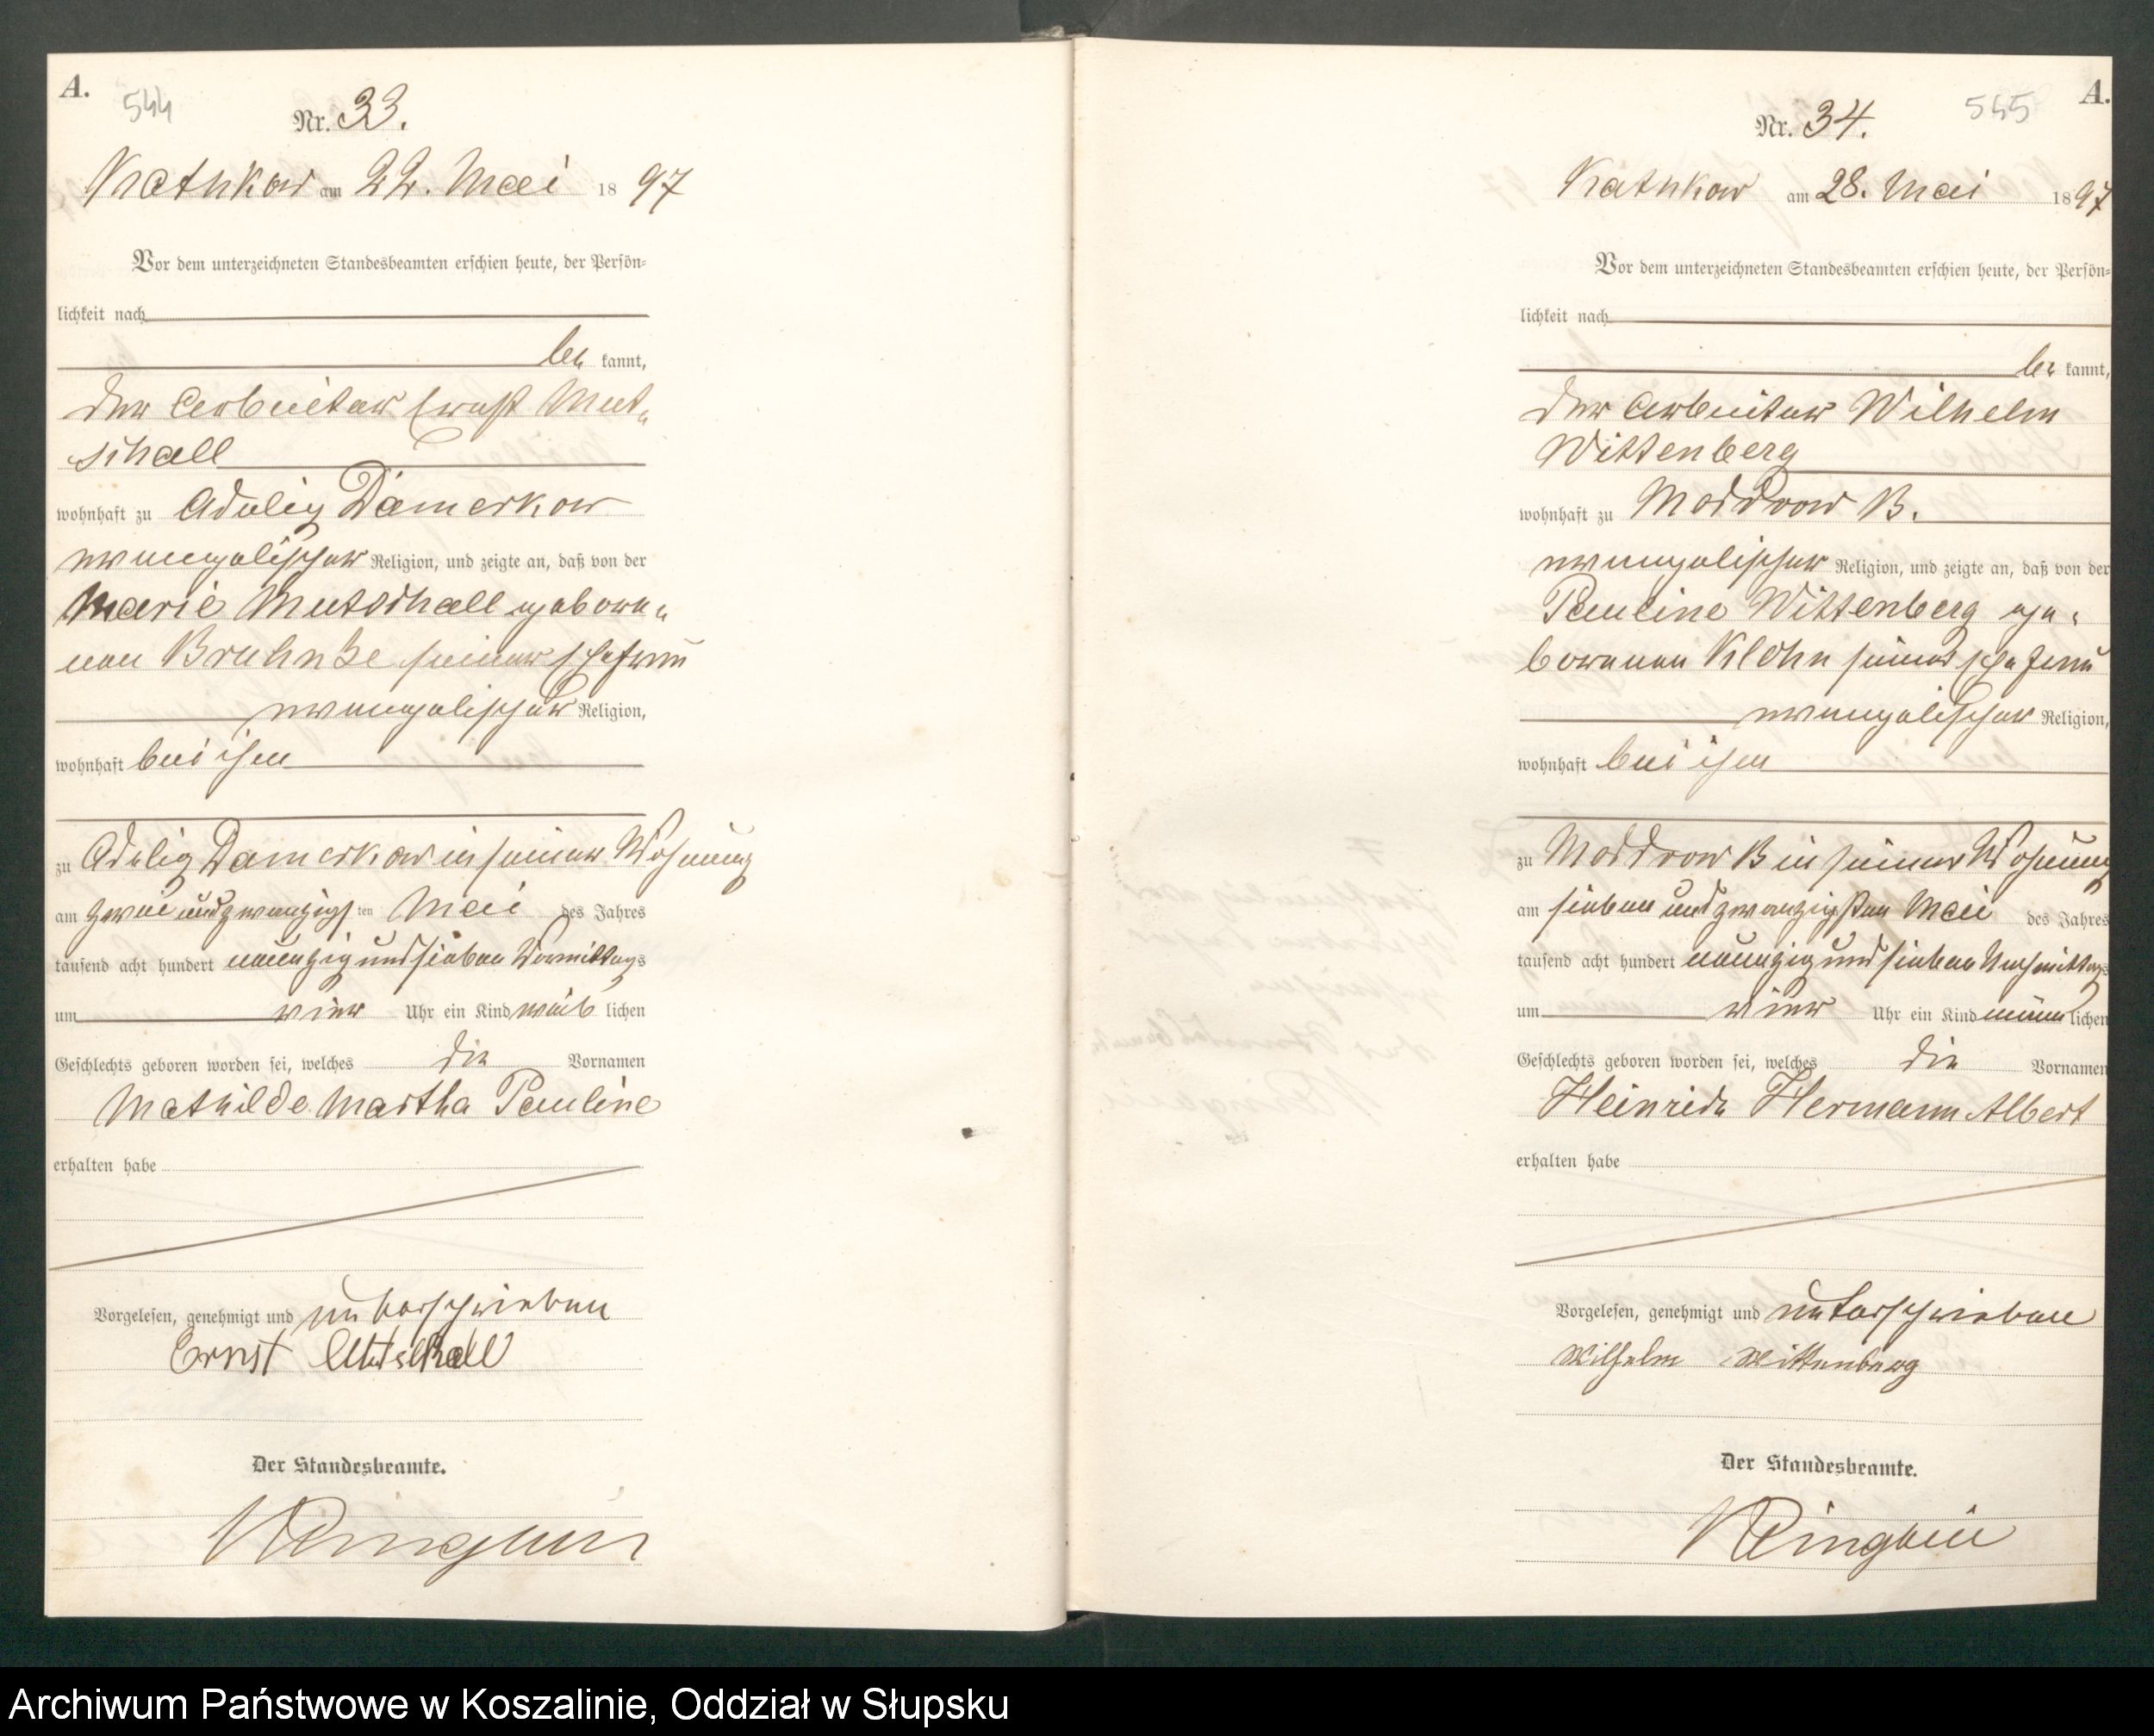 A.
544
Nr. 33.
Kathkow am 22. Mai 1897
Vor dem unterzeichneten Standesbeamten erschien heute, der Persön-
lichkeit nach
be- kannt,
der Arbeiter Ernst Mut-
schall
wohnhaft zu Adelig Damerkow
evangelischer Religion, und zeigte an, daß von der
Marie Mutschall gebore-
nen Bruhnke seiner Ehefrau
evangelischer Religion,
wohnhaft bei ihm
zu Adelig Damerkow in seiner Wohnung
am zwei und zwanzigsten Mai des Jahres
tausend acht hundert neunzig und sieben Vormittags
um vier Uhr ein Kind weiblichen
Geschlechts geboren worden sei, welches die Vornamen
Mathilde Martha Pauline
erhalten habe
Vorgelesen, genehmigt und unterschrieben
Ernst Mutschall
Der Standesbeamte.
A.
545
Nr. 34.
Kathkow am 28. Mai 1897
Vor dem unterzeichneten Standesbeamten erschien heute, der Persön-
lichkeit nach
be- kannt,
der Arbeiter Wilhelm
Wittenberg
wohnhaft zu Moddrow B.
evangelischer Religion, und zeigte an, daß von der
Pauline Wittenberg ge-
borenen Klohn seiner Ehefrau
evangelischer Religion,
wohnhaft bei ihm
zu Moddrow B in seiner Wohnung
am sieben und zwanzigsten Mai des Jahres
tausend acht hundert neunzig und sieben Nachmittags
um vier Uhr ein Kind männlichen
Geschlechts geboren worden sei, welches die Vornamen
Heinrich Hermann Albert
erhalten habe
Vorgelesen, genehmigt und unterschrieben
Wilhelm Wittenberg
Der Standesbeamte.
Archiwum Państwowe w Koszalinie, Oddział w Słupsku